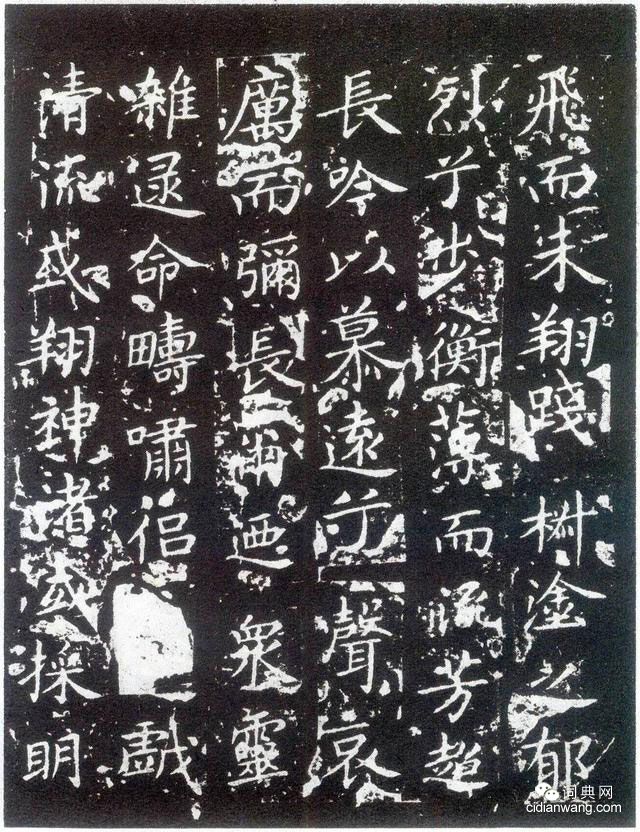 飛而未翔踐椒塗之郁
烈兮步衡薄而流芳超
長吟以慕遠兮聲哀
厲而彌長爾迺眾靈
雜遝命疇嘯侶戲
清流或翔神渚或採明
词典网
cidianwang.com